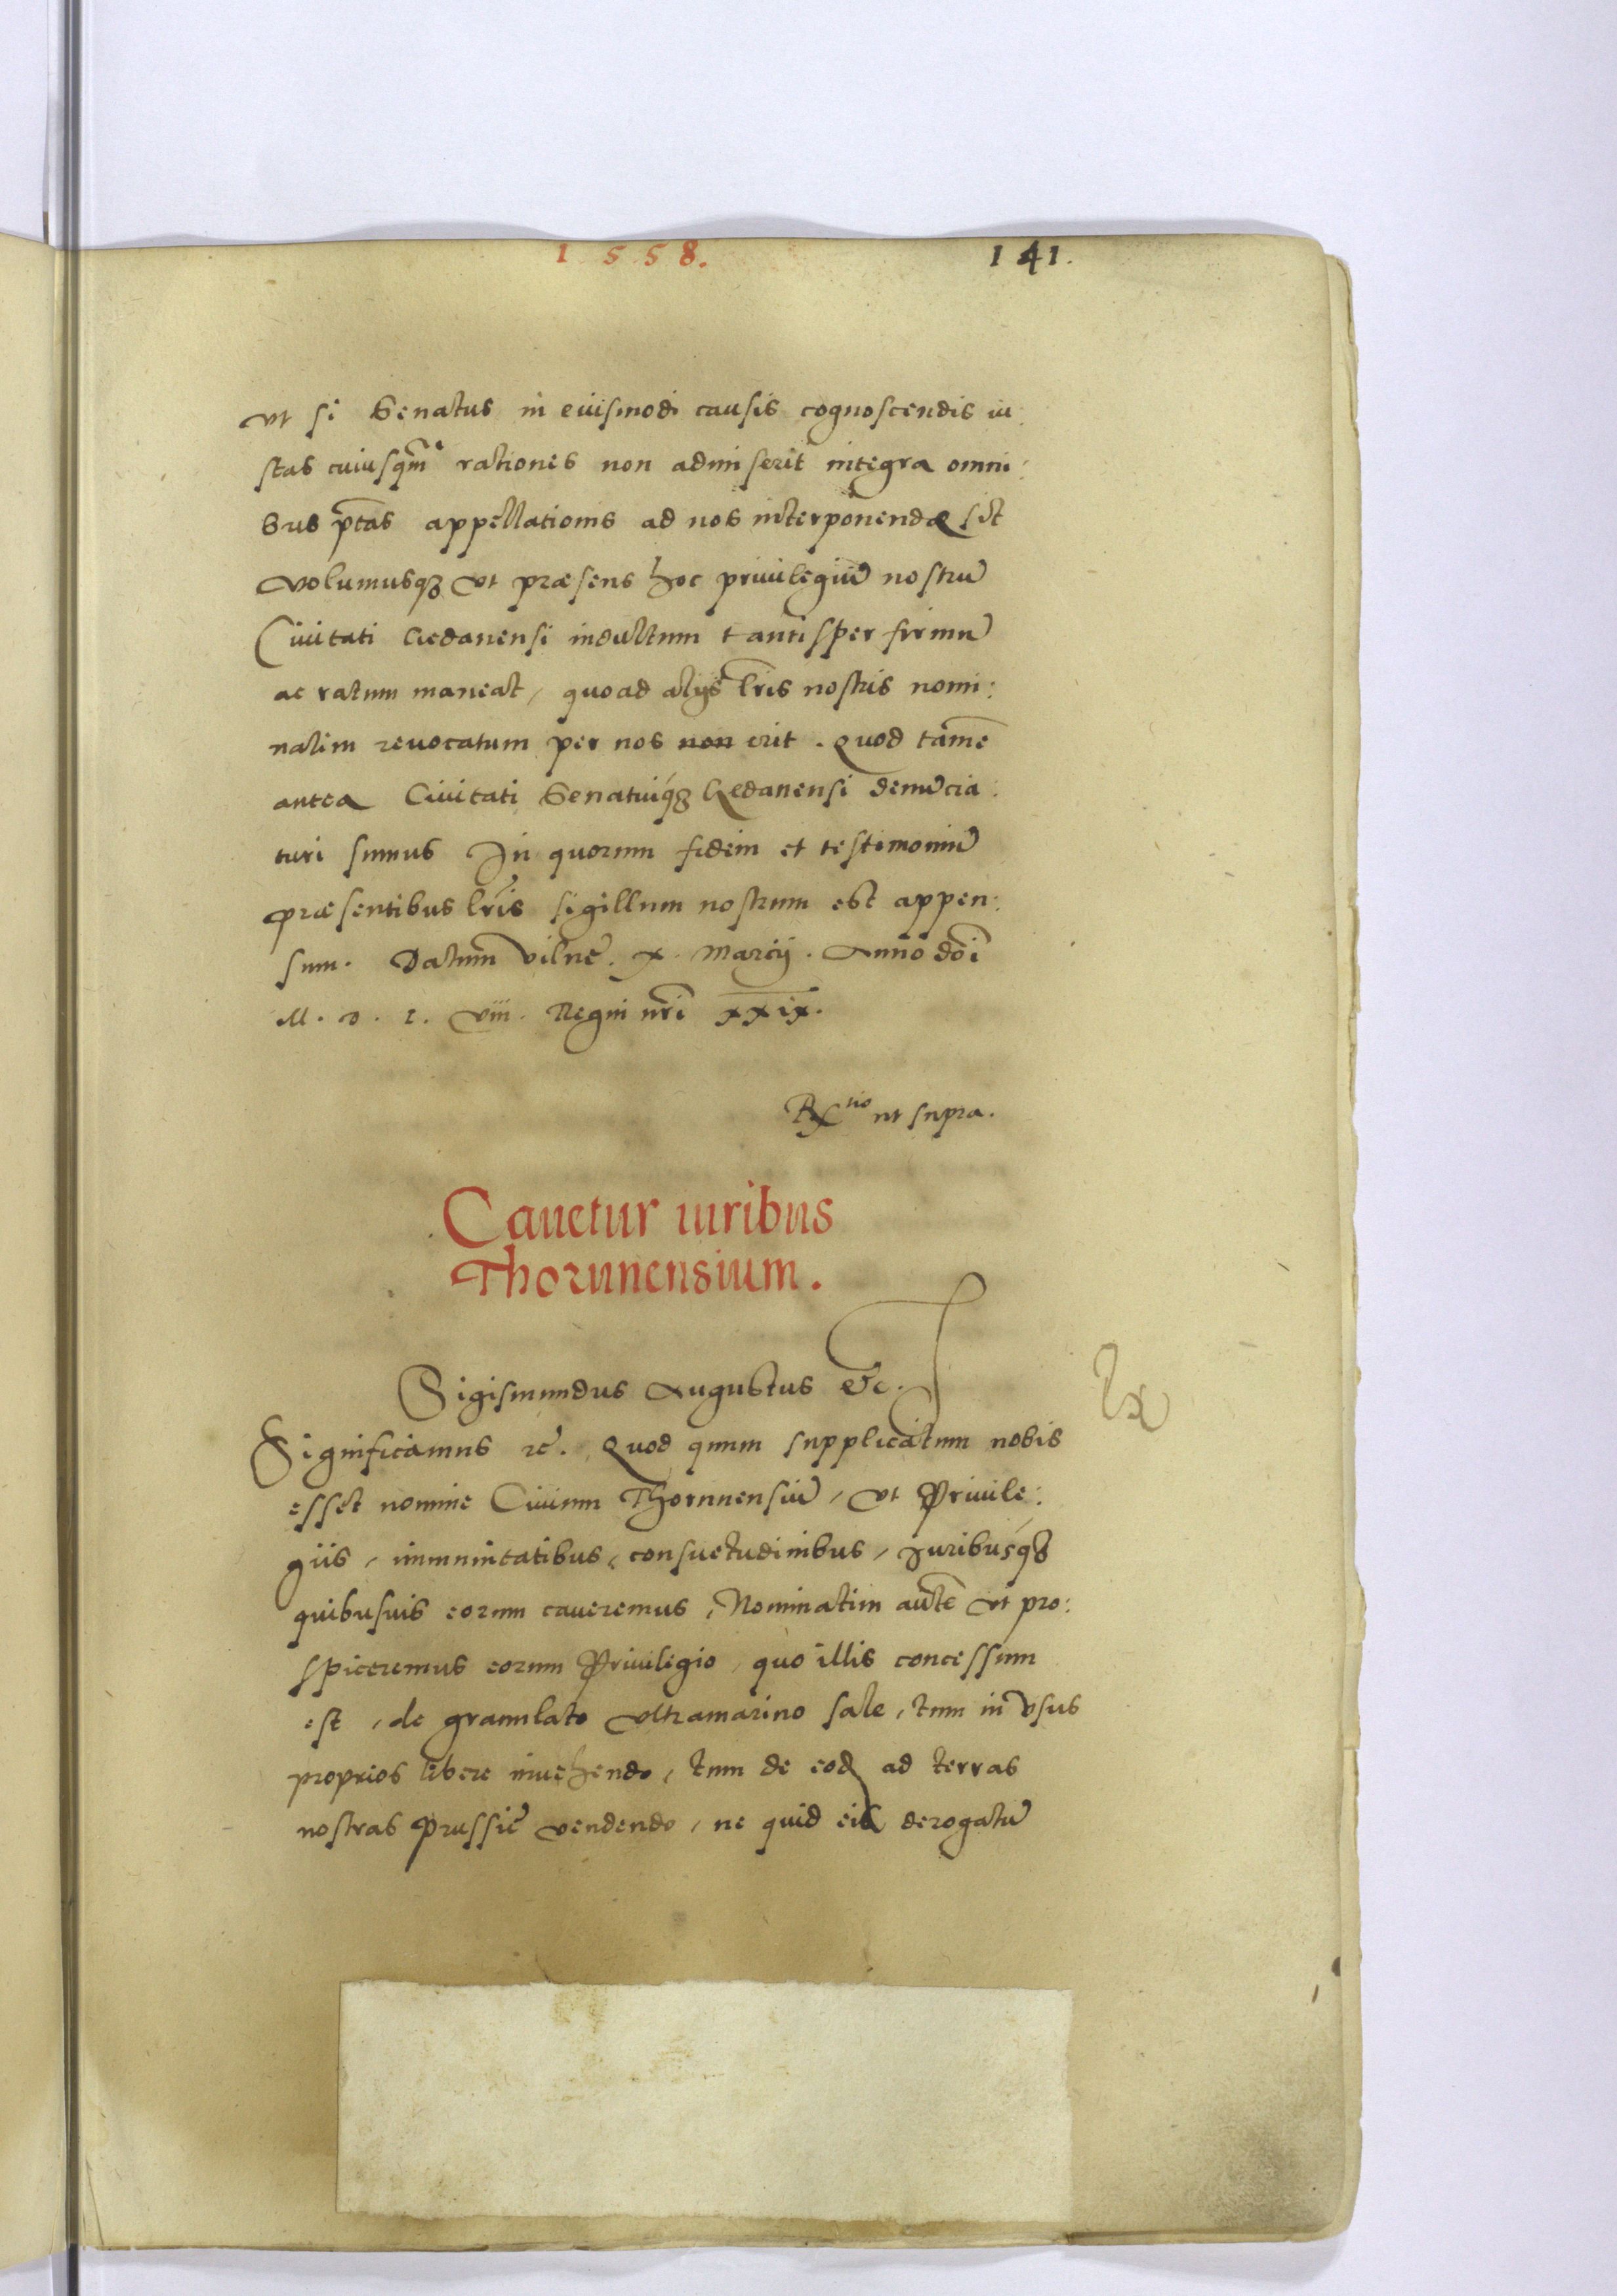 1558. 141.
vt si Senatus in eiusmodi causis cognoscendis iu:
stas cuiusqm̃ rationes non admiserit integra omni:
bus ptãs appellationis ad nos interponendæ sit
volumusqȝ vt præsens hoc priuilegiũ nostrũ
Ciuitati Gedanensi indultum tantisper firmũ
ac ratum maneat, quoad alijs lr̃is nostris nomi:
natim reuocatum per nos non erit. Quod tamẽ
antea Ciuitati Senatuiqȝ Gedanensi denũcia:
turi sumus In quorum fidem et testimoniũ
præsentibus lr̃is sigillum nostrum est appen:
sum. Datum Vilnę. X. Marcij. Anno doĩ
M. D. L. Viii. Regni nr̃i XXIX.
Rx tio ut supra.
Cauetur iuribus
Thorunensium.
Sigismundus Augustus etc.
Significamus rc̃. Quod quum supplicatum nobis
esset nomine Ciuium Thorunensiũ, vt Priuile:
giis, immunitatibus, consuetudinibus, Juribusqȝ
quibusuis eorum caueremus, Nominatim autẽ vt pro:
spiceremus eorum Priuilegio, quo illis concessum
est, de granulato vltramarino sale, tum in vsus
proprios libere inuehendo, tum de eod ad terras
nostras Prussię vendendo, ne quid eis derogatũ